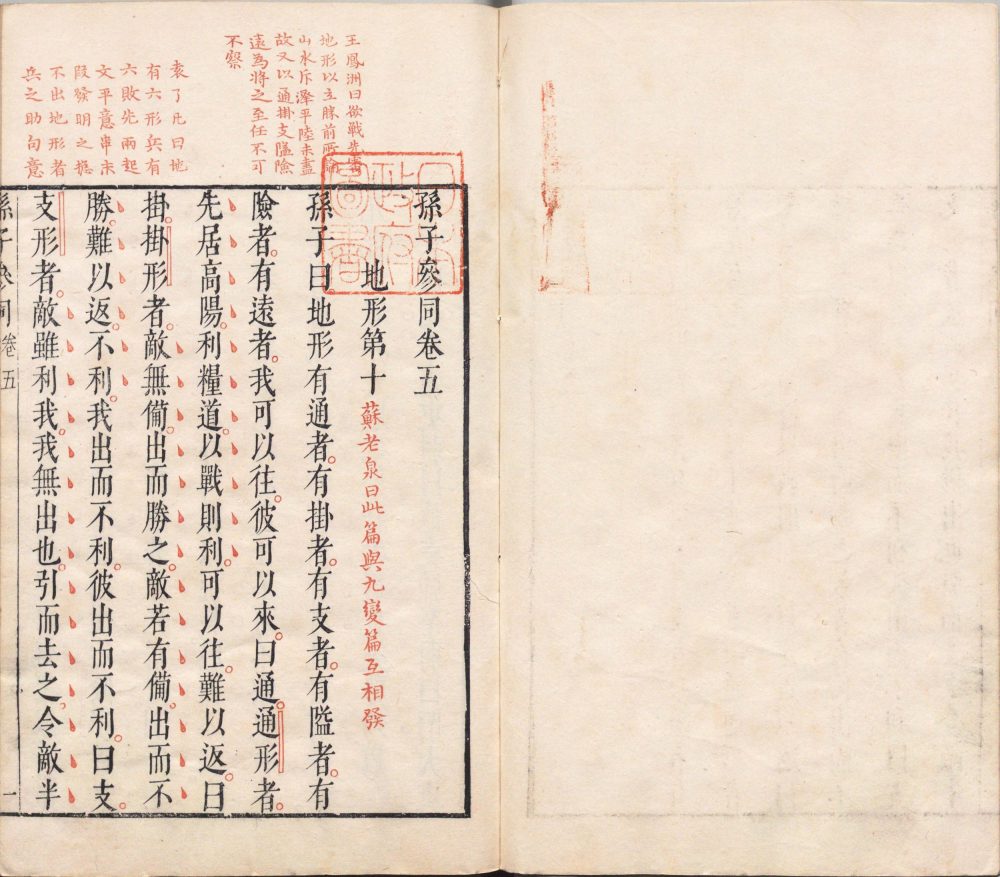 王鳳洲曰欲戰先審
地形以立勝前所論
山水斥澤平陸未盡
故又以通掛支隘險
遠為將之至任不可
不察
袁了凡曰地
有六形兵有
六敗先兩起
文平意串末
段發明之摠
不出地形者
兵之助句意
日本
政府
圖書
孫子參同卷五
地形第十 蘇老泉曰此篇與九變篇互相發
孫子曰地形有通者。有掛者。有支者。有隘者。有
險者。有遠者。我可以往。彼可以來。曰通。通形者。
先居高陽。利糧道。以戰則利。可以往。難以返。曰
掛。掛形者。敵無備。出而勝之。敵若有備。出而不
勝。難以返。不利。我出而不利。彼出而不利。曰支。
支形者。敵雖利我。我無出也。引而去之。令敵半
孫子參同 卷五 一